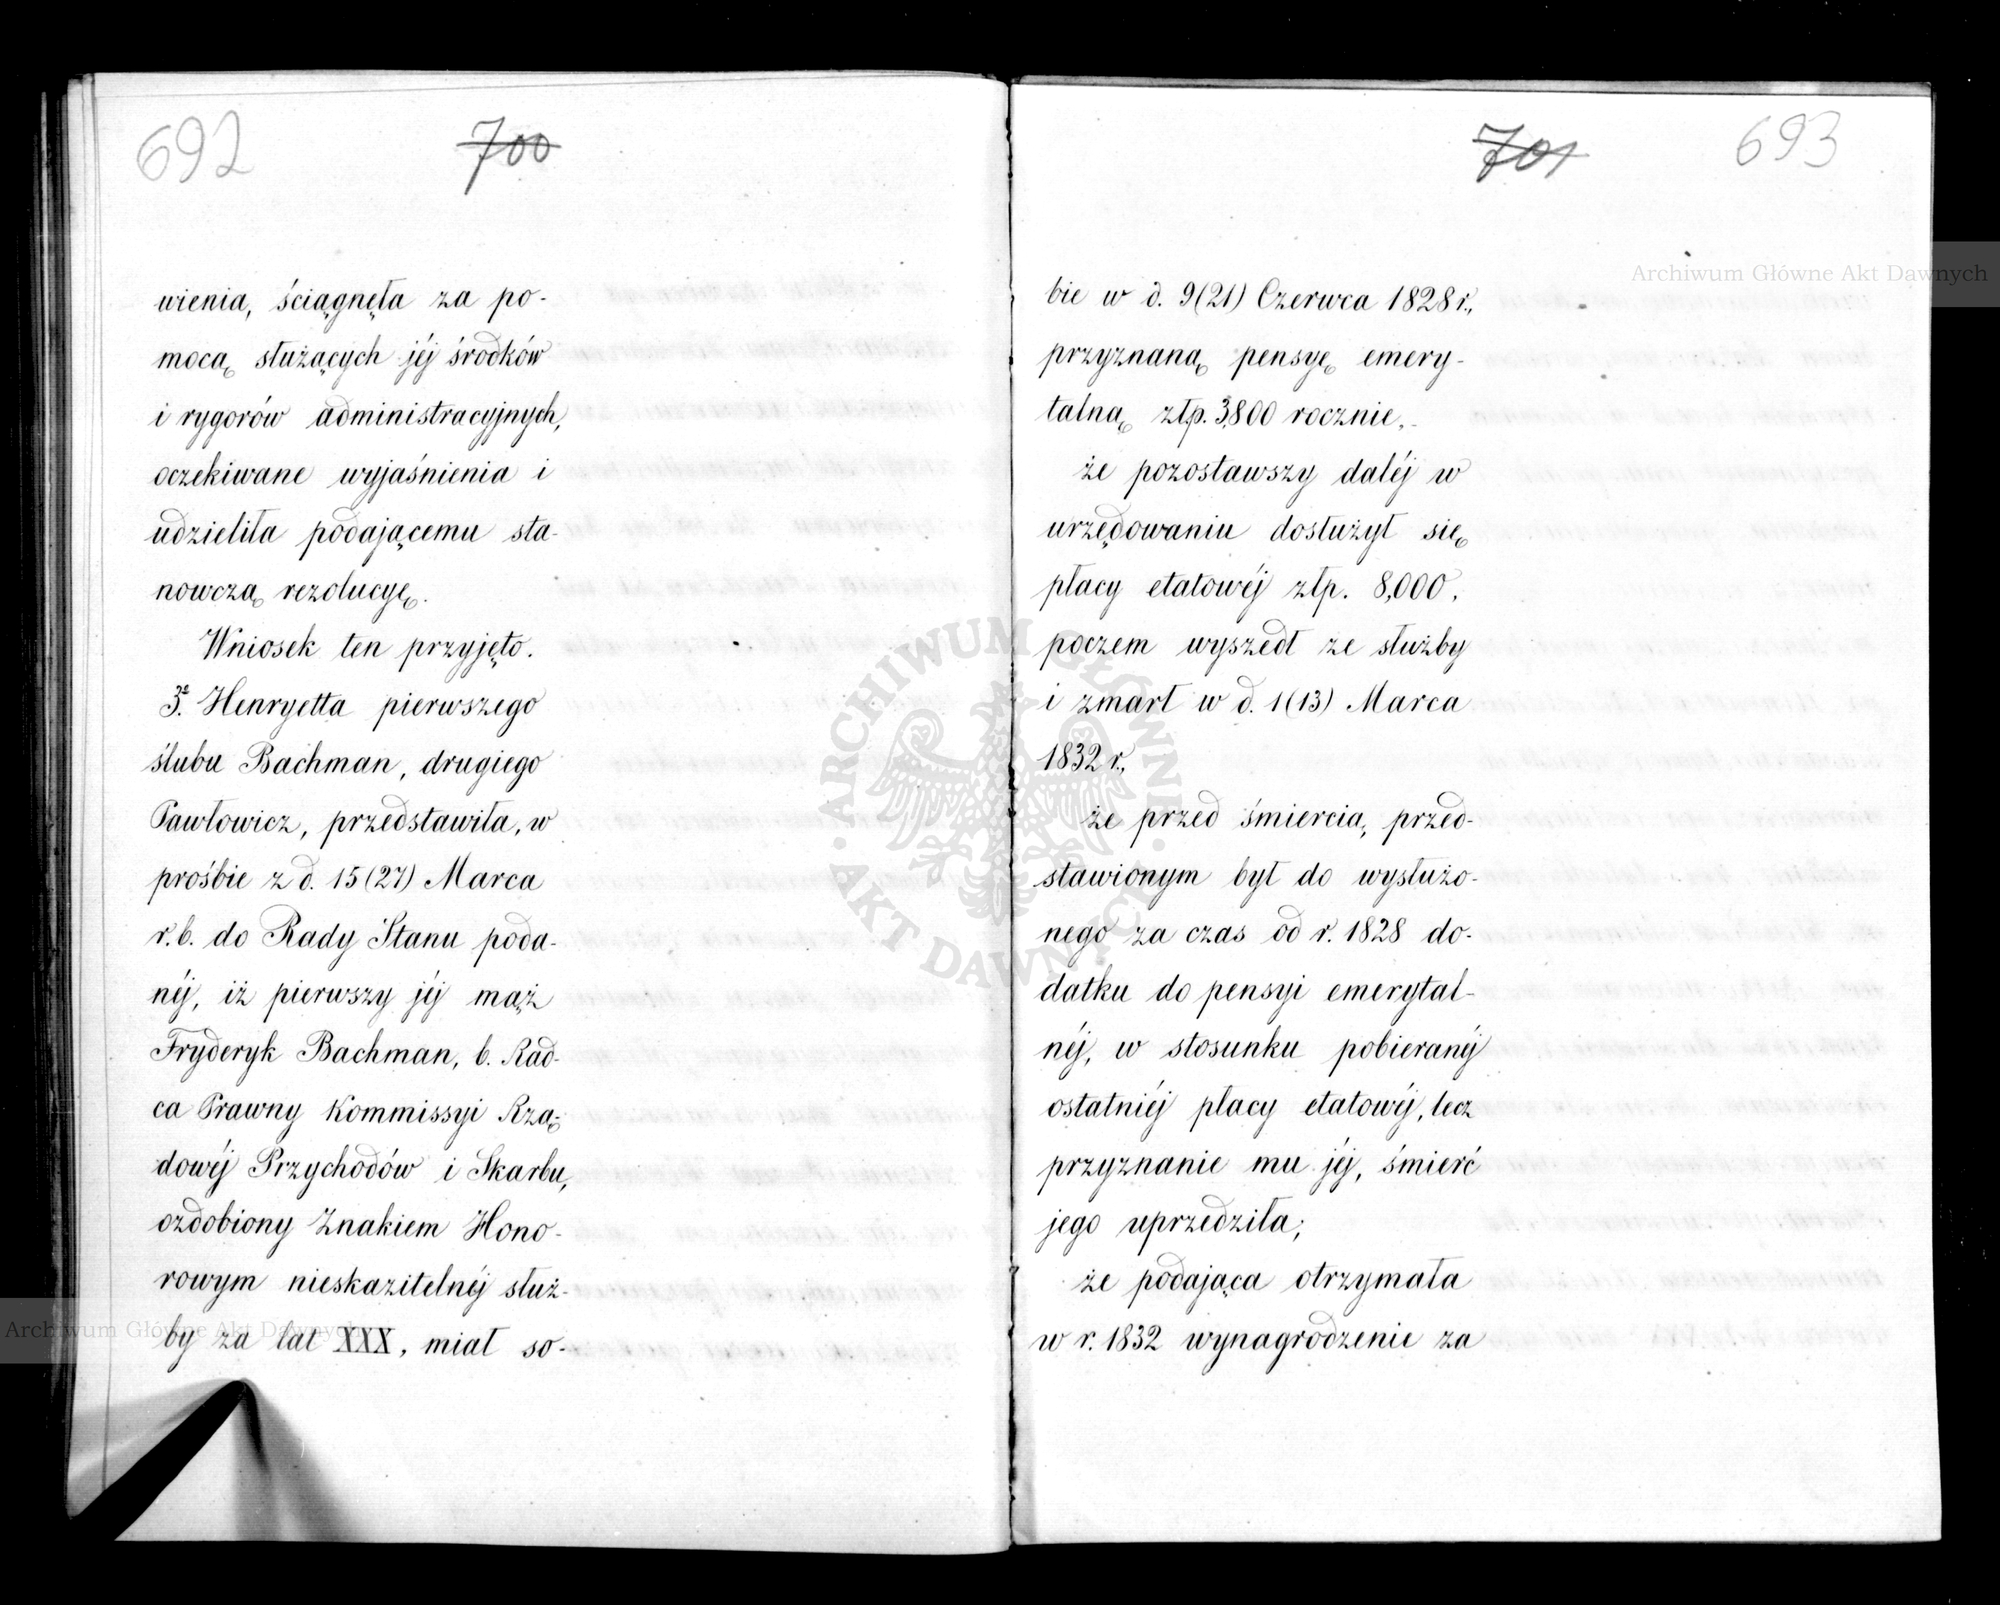 692
700
wienia, ściągnęła za po-
mocą służących jéj środków
i rygorów administracyjnych,
oczekiwane wyjaśnienia i
udzieliła podającemu sta-
nowczą rezolucyę.
Wniosek ten przyjęto.
3. Henryetta pierwszego
ślubu Bachman, drugiego
Pawłowicz, przedstawiła, w
prośbie z d. 15 (27) Marca
r. b. do Rady Stanu poda-
néj, iż pierwszy jéj mąż
Fryderyk Bachman, b. Rad-
ca Prawny Kommissyi Rzą-
dowéj Przychodów i Skarbu,
ozdobiony Znakiem Hono-
rowym nieskazitelnéj służ-
by za lat XXX, miał so-
701
693
bie w d. 9 (21) Czerwca 1828 r.,
przyznaną pensyę emery-
talną złp. 3,800 rocznie,
że pozostawszy daléj w
urzędowaniu dosłużył się
płacy etatowéj złp. 8,000,
poczem wyszedł ze służby
i zmarł w d. 1 (13) Marca
1832 r.,
że przed śmiercią, przed-
stawionym był do wysłużo-
nego za czas od r. 1828 do-
datku do pensyi emerytal-
néj, w stosunku pobieranéj
ostatniéj płacy etatowéj, lecz
przyznanie mu jéj, śmierć
jego uprzedziła;
że podająca otrzymała
w r. 1832 wynagrodzenie za
Archiwum Główne Akt Dawnych
ARCHIWUM GŁÓWNE AKT DAWNYCH
Archiwum Główne Akt Dawnych